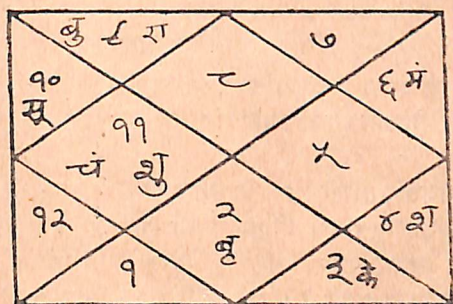 बु ९ रा
७
१०
सू
८
६ मं
११
चं शु
५
१२
२
बृ
४ श
१
३ के